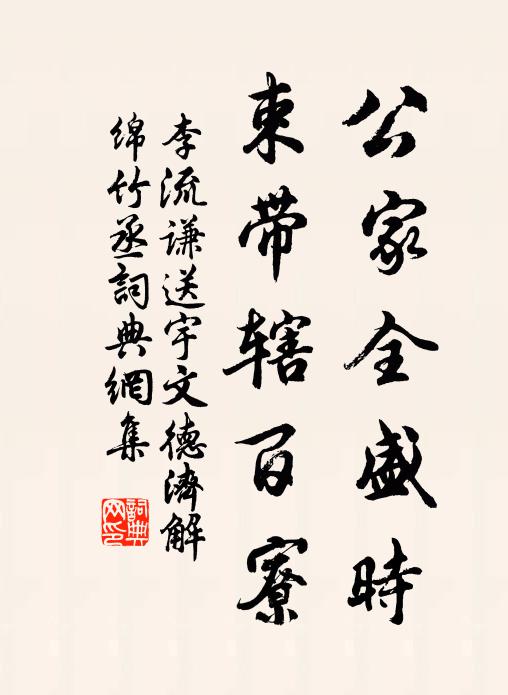 公家全盛時
束带辖百寮
李流谦送宇文德濟解
绵竹丞詞典網集
詞典
网印